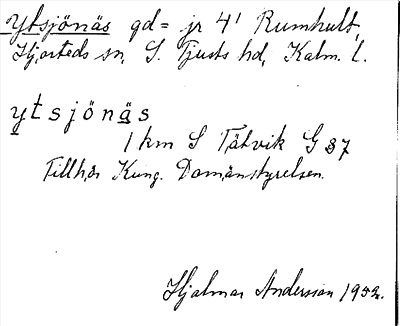 Ytsjönäs gd= jr 4¹ Rumhult,
Hjorteds sn, S. Tjusts hd, Kalm. l.
ytsjönäs
1 km S Tätvik G 37
Tillhör Kung. Domänstyrelsen.
Hjalmar Andersson 1952.